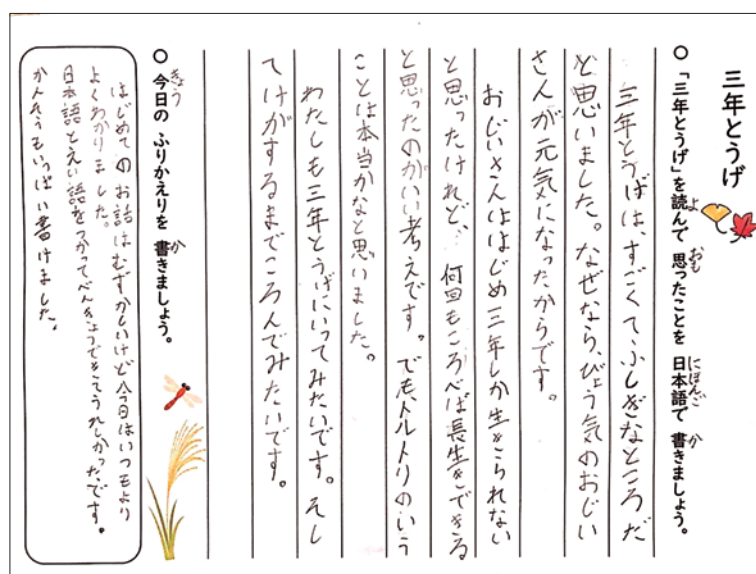 三年とうげ
○「三年とうげ」を読んで 思ったことを 日本語で 書きましょう。
よ おも にほんご か
三年とうげは、すごくてふしぎなところだ
と思いました。なぜなら、びょう気のおじい
さんが元気になったからです。
おじいさんははじめ三年しか生きられない
と思ったけれど、何回もころべば長生きできる
と思ったのがいい考えです。でも、トルトリのいう
ことは本当かなと思いました。
わたしも三年とうげにいってみたいです。そし
てけがするまでころんでみたいです。
○ 今日の ふりかえりを 書きましょう。
きょう か
はじめてのお話はむずかしいけど今日はいつもより
よくわかりました。
日本語とえい語をつかってべんきょうできてうれしかったです。
かんそうもいっぱい書けました。